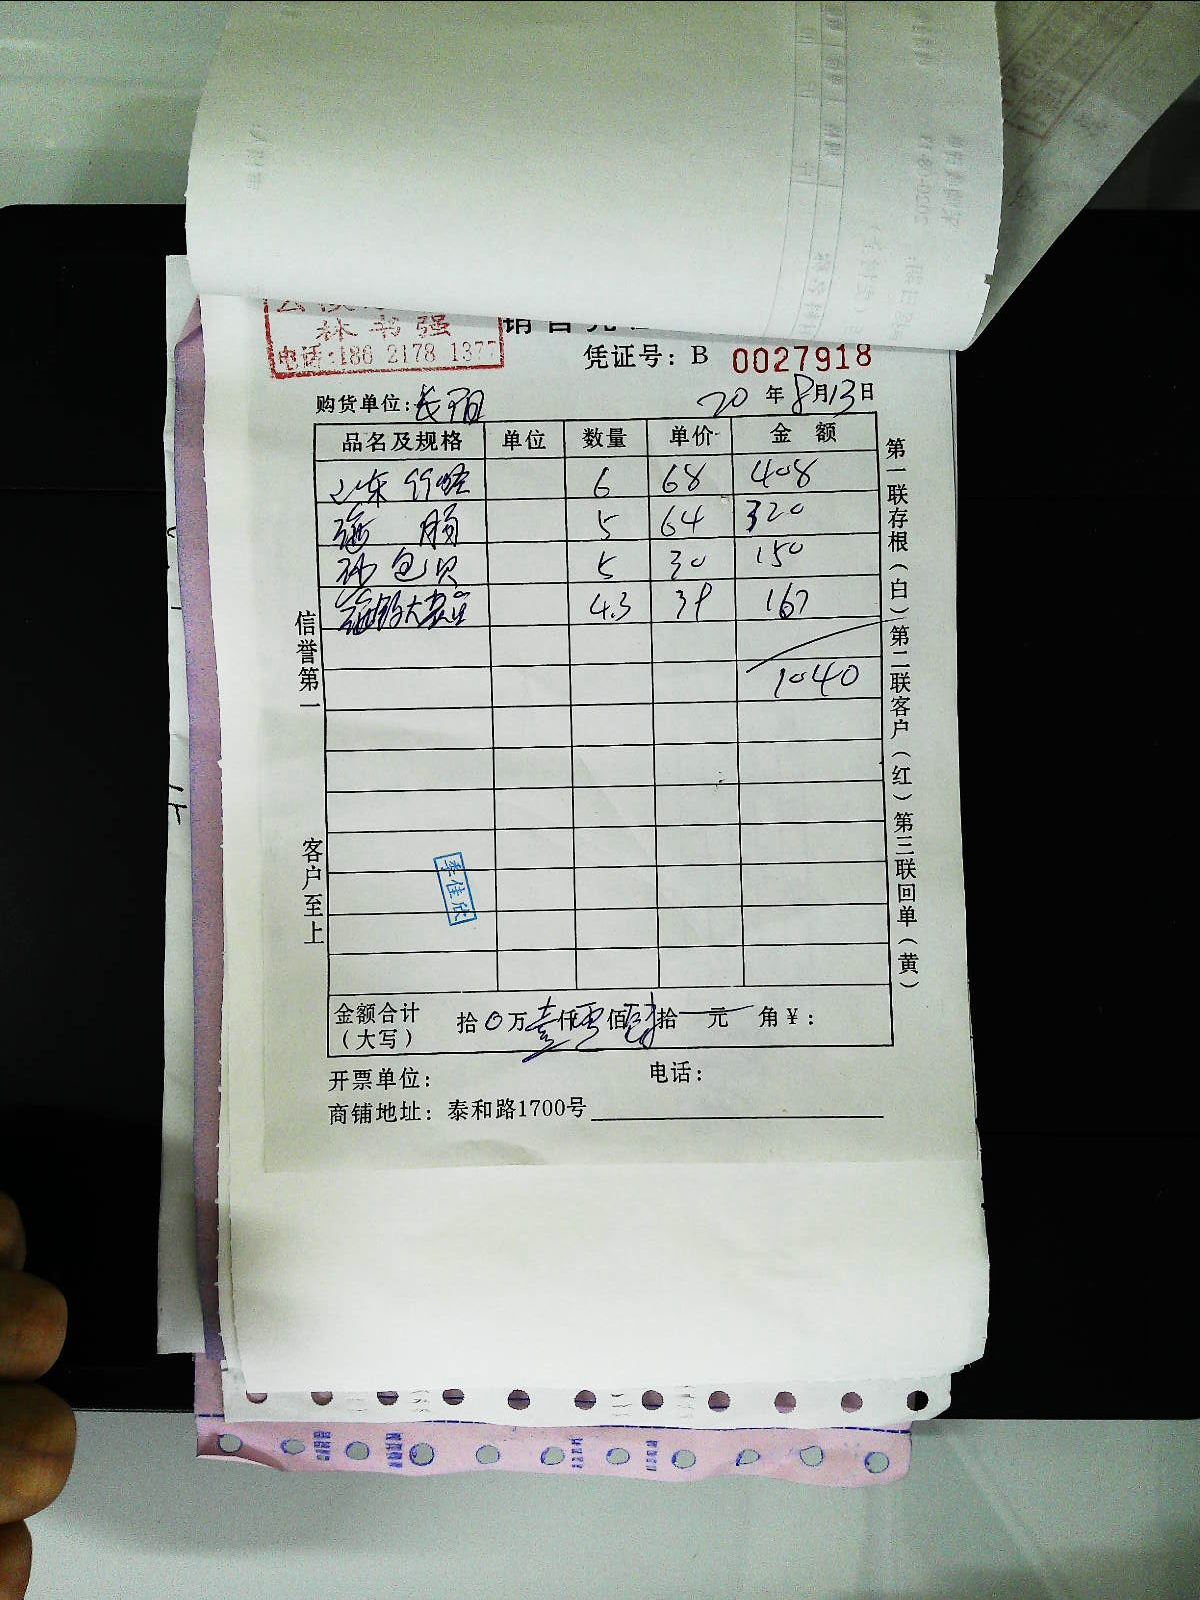 林书强
电话:186 2178 1377
凭证号：B 0027918
购货单位：长阳 20 年 8月13日
品名及规格 单位 数量 单价 金额
山东 6 68 408
肠 5 64 320
包贝 5 30 150
大 4.3 39 167
1040
李佳欣
金额合计（大写） 拾0万壹仟零佰肆拾 元 角¥：
开票单位： 电话：
商铺地址：泰和路1700号
信誉第一 客户至上
第一联存根（白）第二联客户（红）第三联回单（黄）